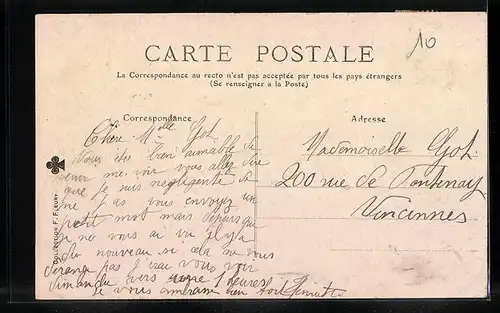 10
CARTE POSTALE
La Correspondance au recto n'est pas acceptée par tous les pays étrangers
(Se renseigner à la Poste)
Correspondance
Adresse
Chère Melle Got
Vous êtes bien aimable de
venir me voir vous allez dire
que je suis negligente de
ne pas vous envoyer un
petit mot mais depuis que
je ne vous ai vu il y a
du nouveau si cela ne vous
derange pas j'irai vous voir
dimanche vers 1 heures
si vous
Mademoiselle Got
200 rue de Fontenay
Vincennes
COLLECTION F. FLEURY